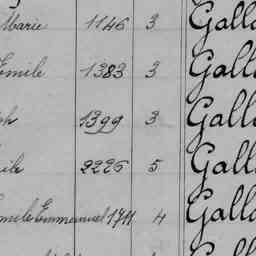 Marie 1146 3 Gall
Emile 1383 3 Gall
ph 1399 3 Gall
ile 2226 5 Gall
Emile Emmanuel 1711 4 Gall